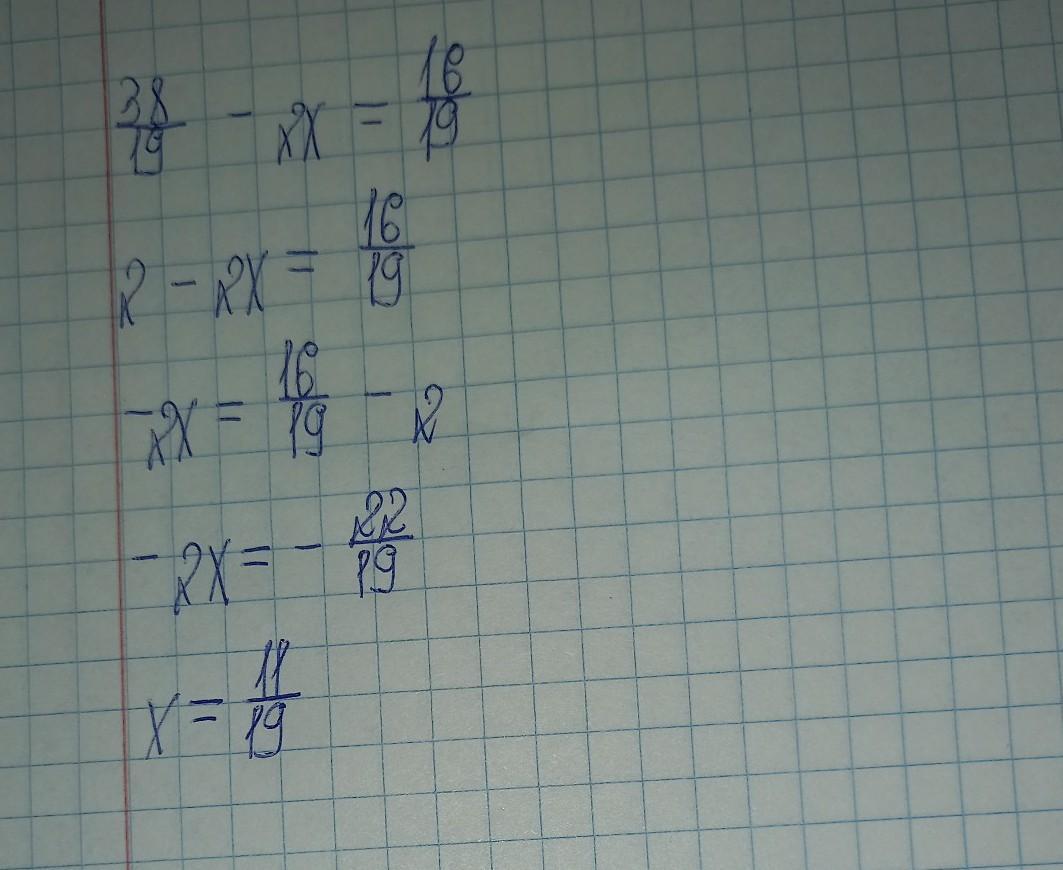 38/19 - 2x = 16/19
2 - 2x = 16/19
-2x = 16/19 - 2
-2x = - 22/19
x = 11/19